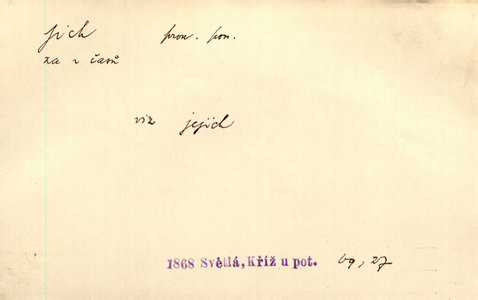 jich pron. pon.
za z časů
viz jejich
1868 Světlá, Kříž u pot. 69, 27